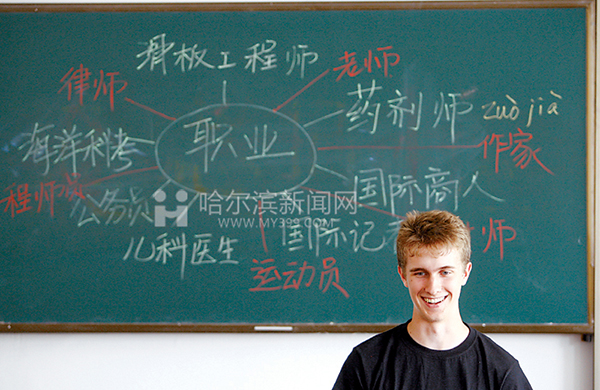 滑板工程师
老师
律师
药剂师
zuò jià
海洋科考
职业
作家
程师员
公务员
国际商人
哈尔滨新闻网
WWW.MY399.COM
国际记
师
儿科医生
运动员